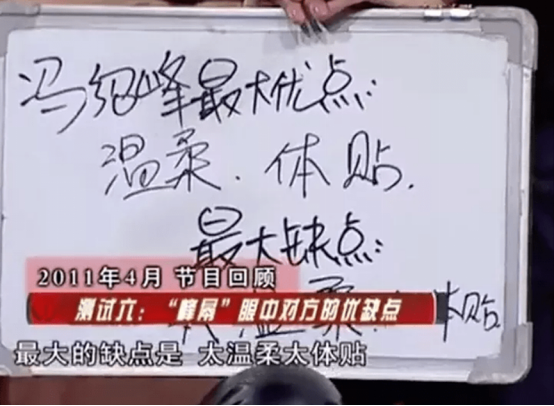 冯绍峰最大优点:
温柔、体贴.
最大缺点:
温柔 体贴
2011年4月 节目回顾
测试六：“峰幂”眼中对方的优缺点
最大的缺点是 太温柔太体贴